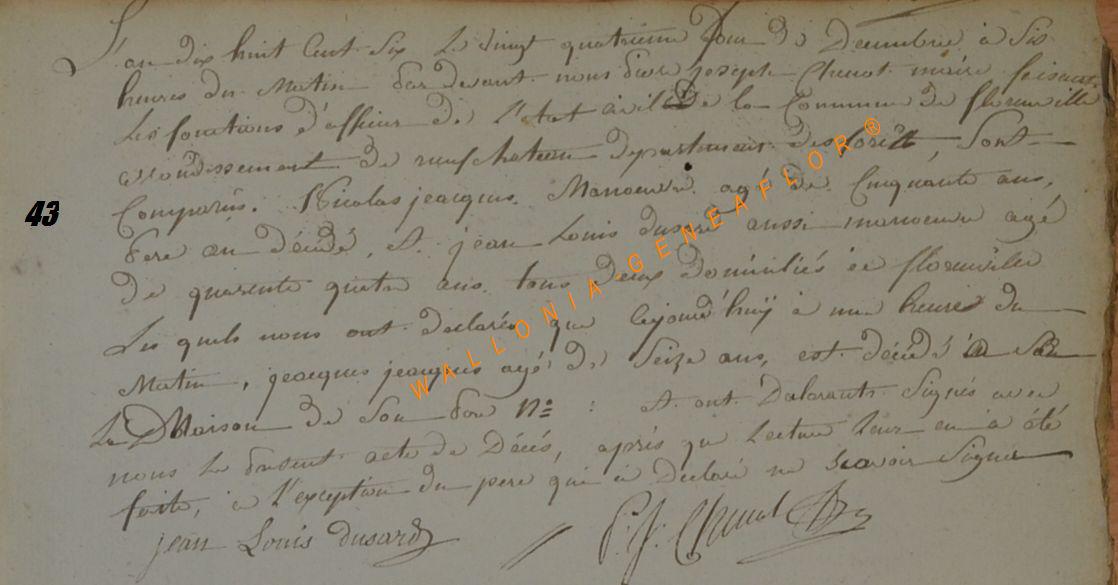 L'an dix huit Cent Six Le vingt quatrieme Jour de Decembre à Six
heures du Matin pardevant nous joseph Chenot maire faisant
Les fonctions d'officier de l'Etat civil De la Commune de florenville
arondissement de neufchateau departement des forêts, Sont
Comparus. Nicolas jeacques Manoeuvre agé de Cinquante ans,
Pere au décédé, et jean Louis dusard aussi manoeuvre agé
de quarente quatre ans tous deux domiciliés a florenville
Les quels nous ont declarés que cejourd'huÿ à une heure du
Matin, jeacques jeacques agé de Seize ans, est décédé
La Maison de Son Pere No : et ont Declarants Signés avec
nous Le present acte de Décés, aprés que Lecture leur en à été
faite, à l'exception du pere qui à Declaré ne Scavoir Signer
jean Louis dusard // P. J. Chenot
43
WALLONIA-GENEAFLOR ®